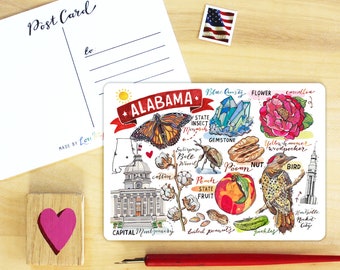 Post Card
to
MADE BY
ALABAMA
STATE
INSECT
Monarch
Blue Quartz
GEMSTONE
FLOWER
camellia
Yellowhammer
woodpecker
BIRD
cotton
Boll
Weevil
Pecan
NUT
Peach
STATE
FRUIT
CAPITAL Montgomery
boiled peanuts
Huntsville
Rocket
City